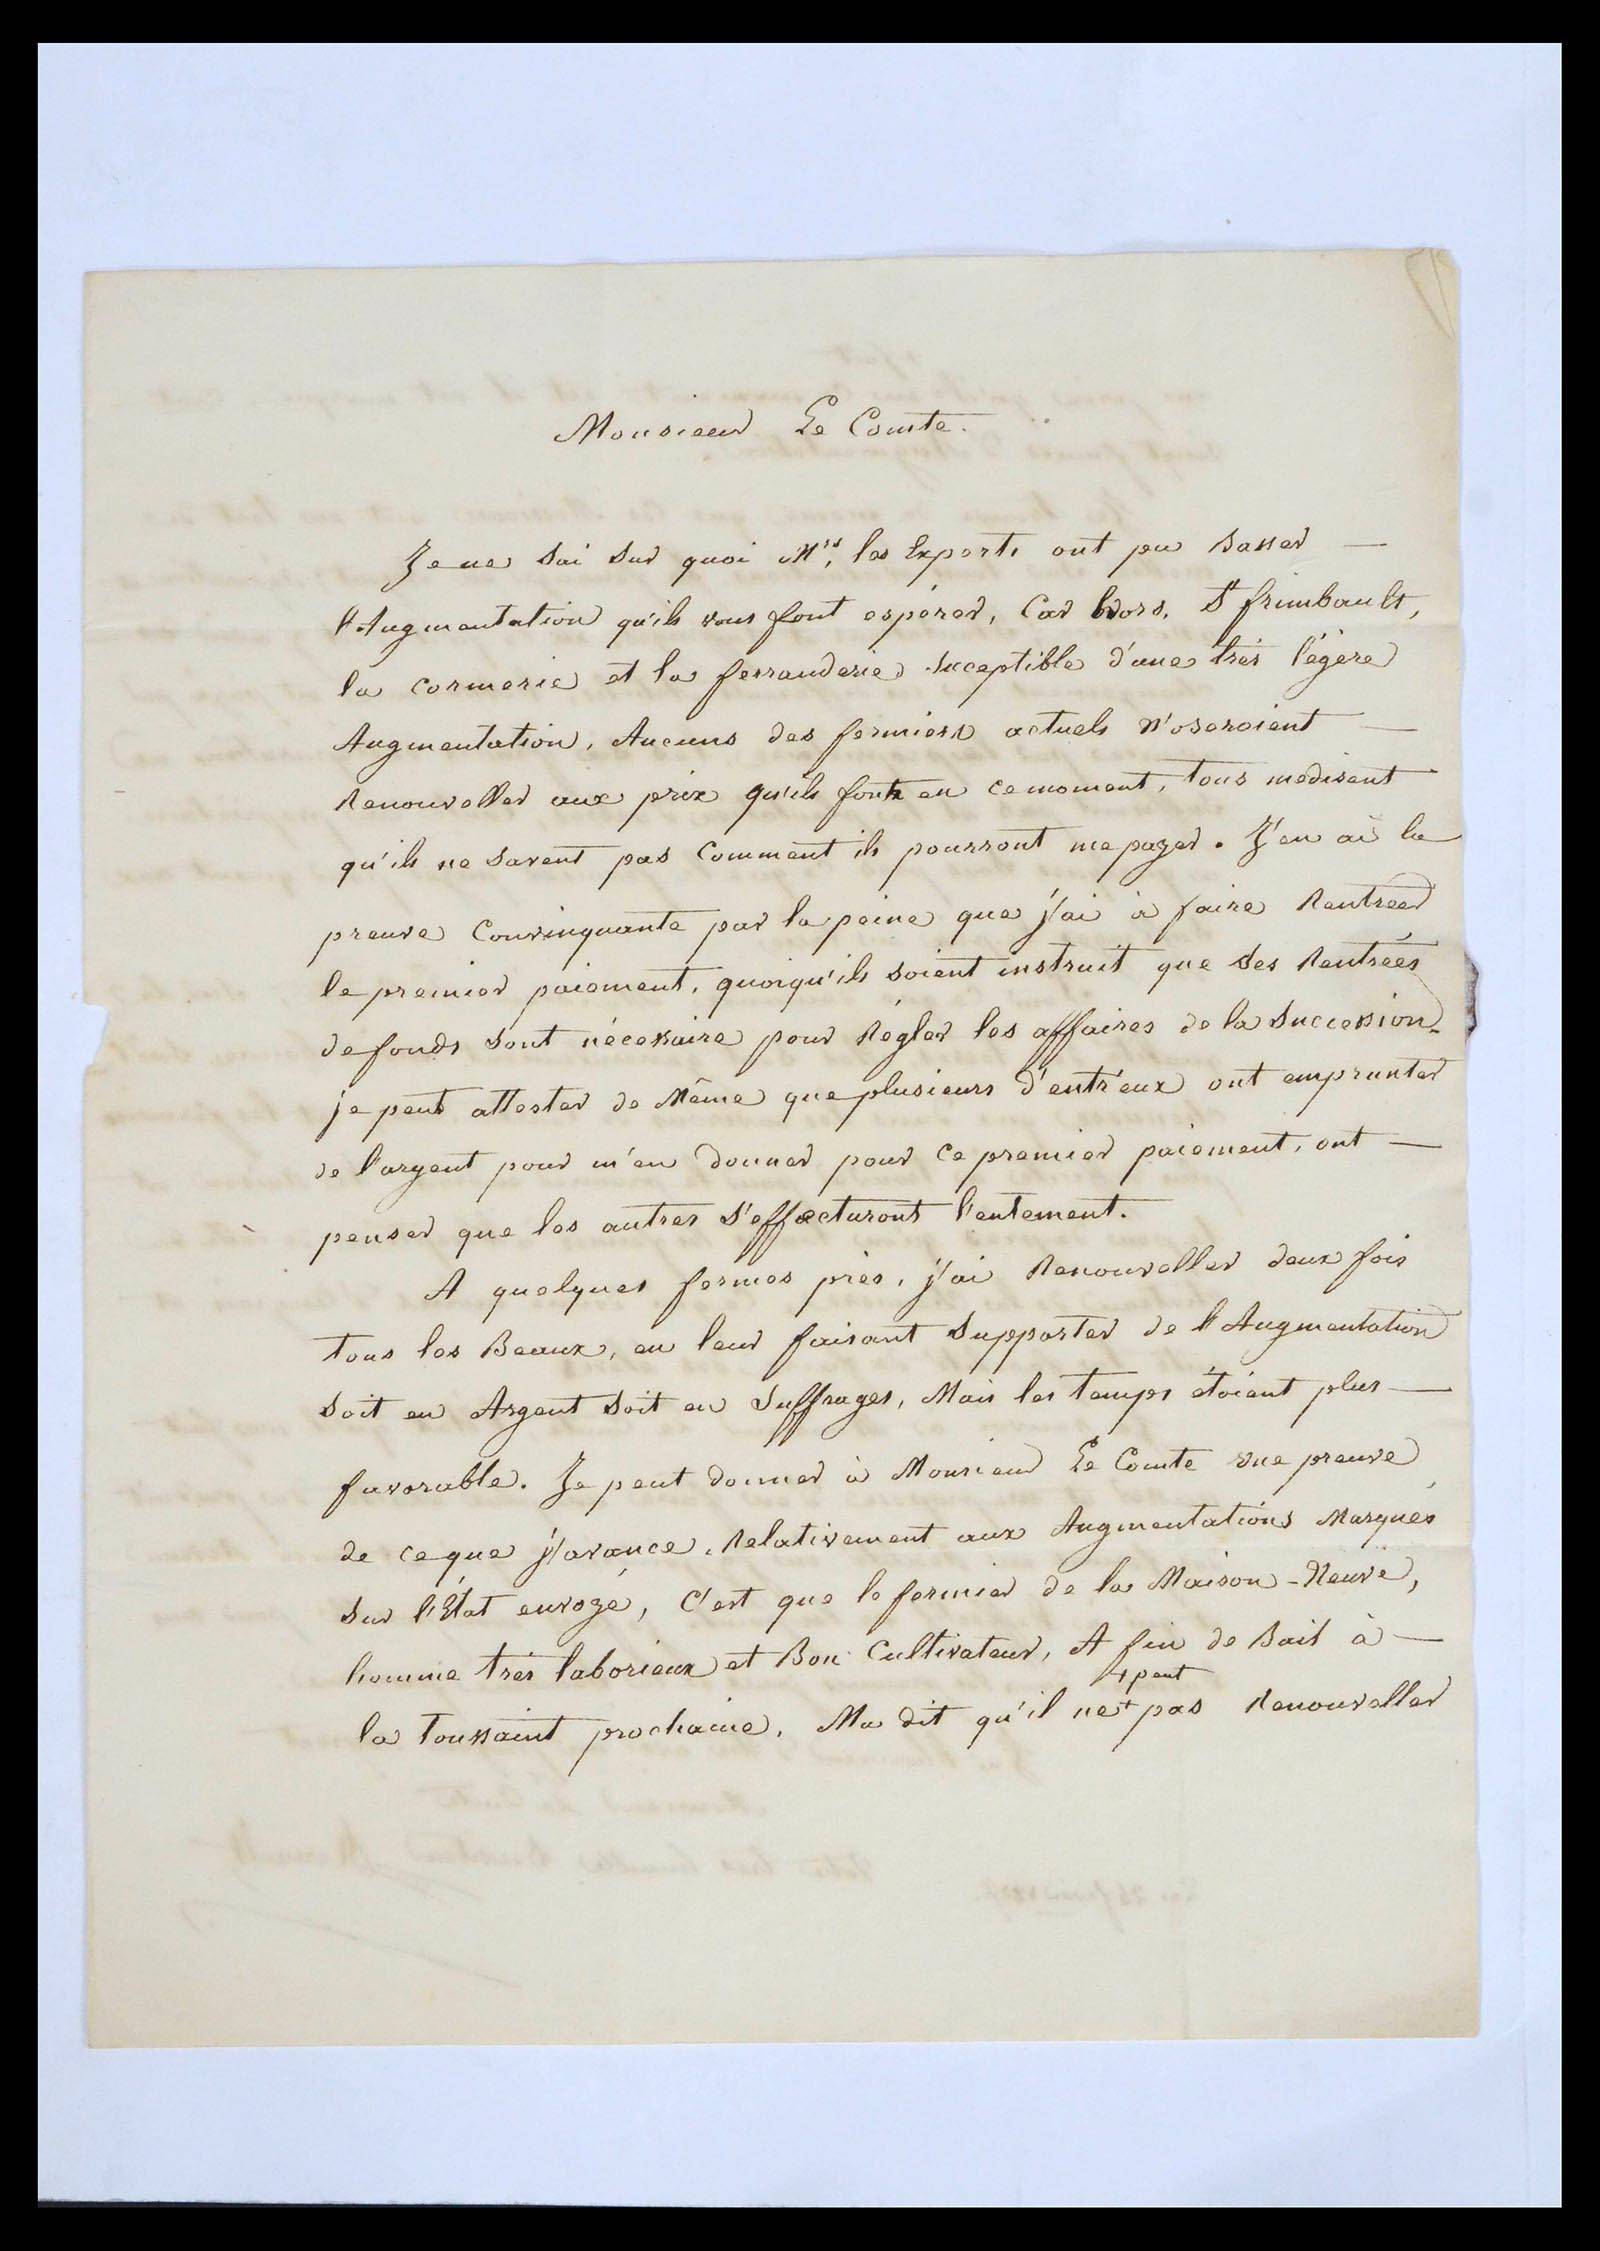 Monsieur Le Comte.
Je ne Sai Sur quoi M.rs les Experts ont pu Basser —
l'Augmentation qu'ils vous font espérer, Car hors, St frimbault,
la Cormerie et la ferrauderie Suceptible d'une très l'égère
Augmentation, Aucuns des fermiers actuels N'oseroient —
Renouveller aux prix qu'ils font en ce moment, tous me disent
qu'ils ne Savent pas Comment ils pourront me payer. J'en ai la
preuve Convinquante par la peine que j'ai à faire Rentréer
le premier paiement, quoiqu'ils Soient instruit que des Rentrées
de fonds Sont nécessaire pour Régler les affaires de la Succession
je peut attester de Même que plusieurs d'entr'eux ont emprunter
de l'argent pour m'en donner pour ce premier paiement, ont —
penser que les autres S'effecturont l'entement.
A quelques fermes près, j'ai Renouveller deux fois
tous les Beaux, en leur faisant Supporter de l'Augmentation
Soit en Argent Soit en Suffrages, Mais les temps étoient plus —
favorable. Je peut donner à Monsieur Le Comte une preuve
de ce que j'avance, Relativement aux Augmentations Marqués
Sur l'État envoyé, C'est que le fermier de la Maison-Neuve,
homme très laborieux et Bon Cultivateur, A fin de Bail à —
+ peut
la Toussaint prochaine, Ma dit qu'il ne + pas Renouveller